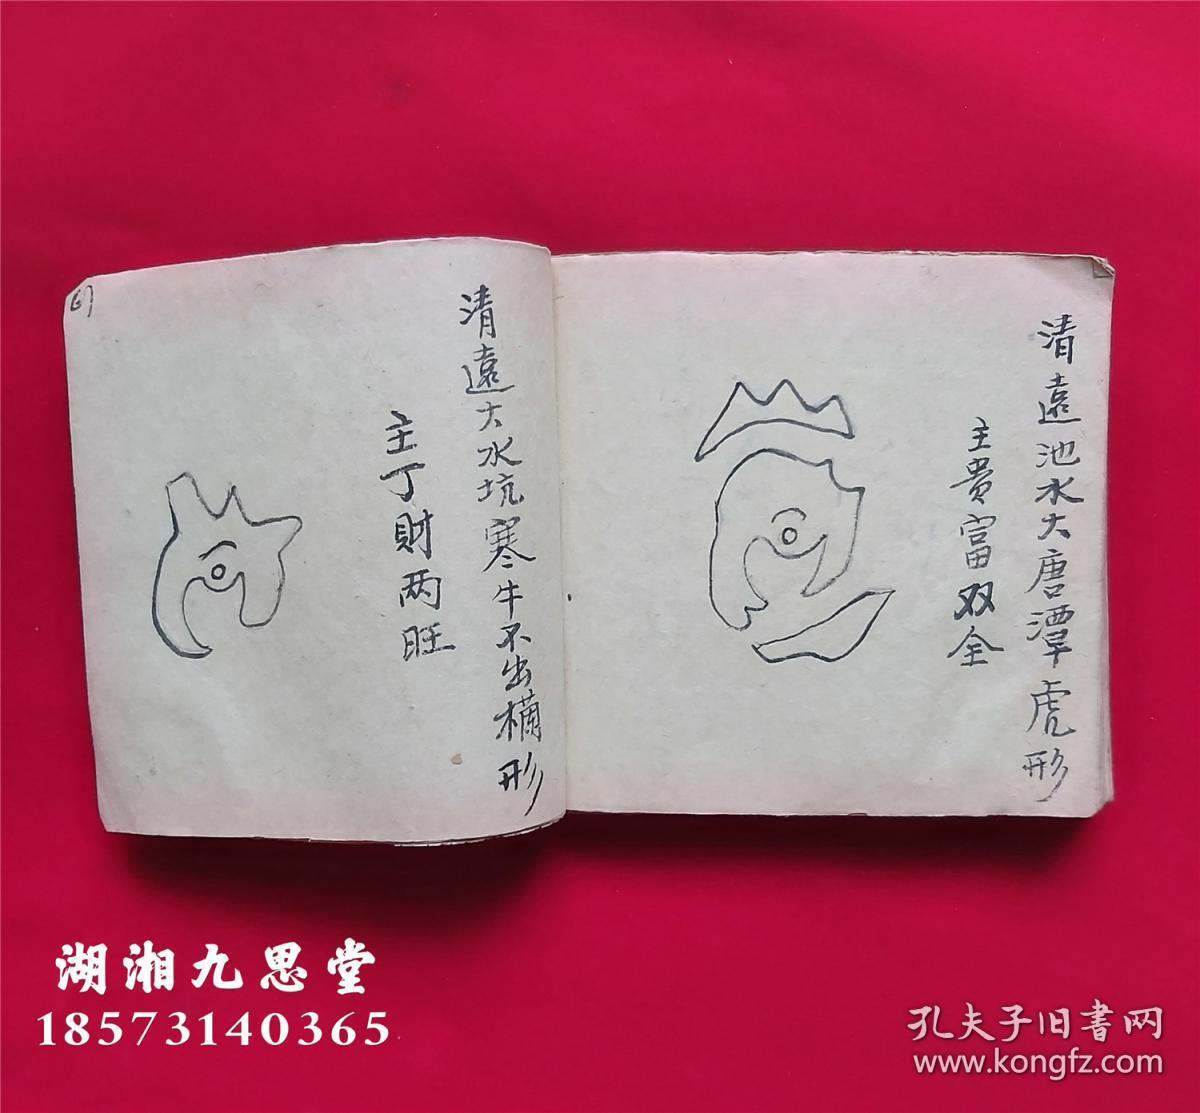 清遠池水大唐潭虎形
主貴富双全
清遠大水坑寒牛不出欄形
主丁財两旺
67
湖湘九思堂
18573140365
孔夫子旧書网
www.kongfz.com